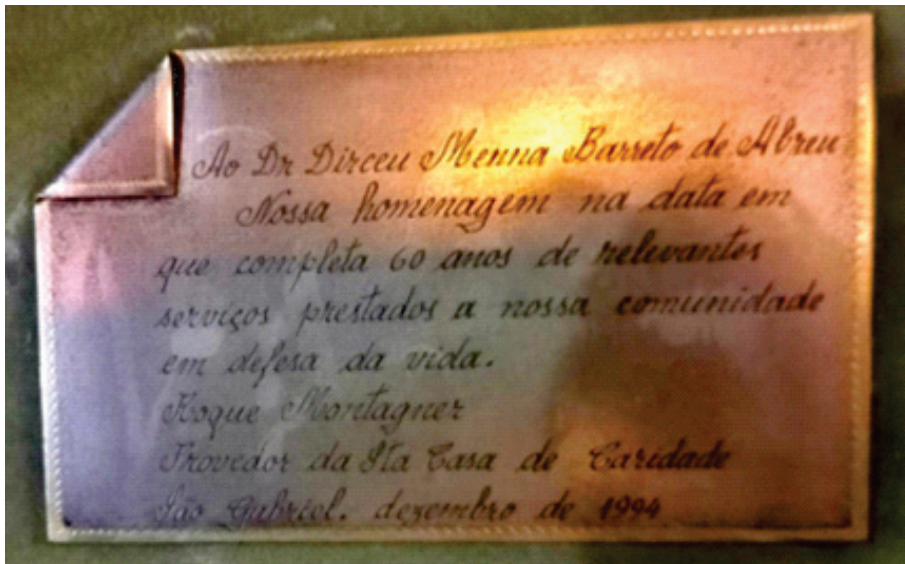 Ao Dr Dirceu Menna Barreto de Abreu
Nossa homenagem na data em
que completa 60 anos de relevantes
serviços prestados a nossa comunidade
em defesa da vida.
Roque Montagner
Provedor da Sta Casa de Caridade
São Gabriel. dezembro de 1994